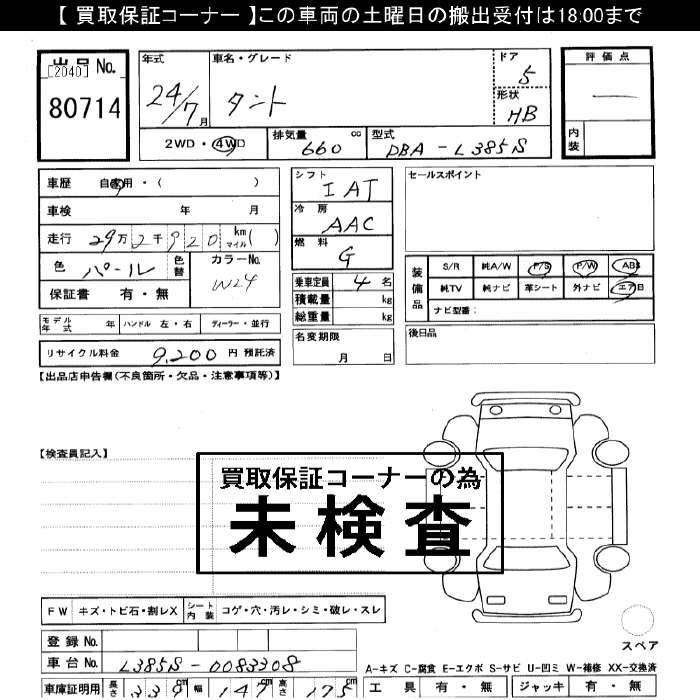 【 買取保証コーナー 】この車両の土曜日の搬出受付は18:00まで
出品No.
[2040]
80714
年式
24/7月
車名・グレード
タント
ドア
5
形状
HB
評価点
内装
2WD・4WD
排気量
660 cc
型式
DBA - L385S
車歴 自家用・( )
車検 年 月
走行 29万2千920 km マイル( )
色 パール 色替
カラーNo.
W24
保証書 有・無
シフト
IAT
冷房
AAC
燃料
G
乗車定員 4 名
積載量 kg
総重量 kg
セールスポイント
装備品
S/R 純A/W P/S P/W ABS
純TV 純ナビ 革シート 外ナビ エアB
ナビ型番：
モデル年式 年 ハンドル 左・右 ディーラー・並行
名変期限
月 日
後日品
リサイクル料金 9,200 円 預託済
【出品店申告欄(不良箇所・欠品・注意事項等)】
【検査員記入】
買取保証コーナーの為
未検査
FW キズ・トビ石・割レX シート内装 コゲ・穴・汚レ・シミ・破レ・スレ
スペア
登録No.
車台No. L385S-0083308
A-キズ C-腐食 E-エクボ S-サビ U-凹ミ W-補修 XX-交換済
車庫証明用 長さ 339cm 幅 147cm 高さ 175cm
工具 有・無 ジャッキ 有・無